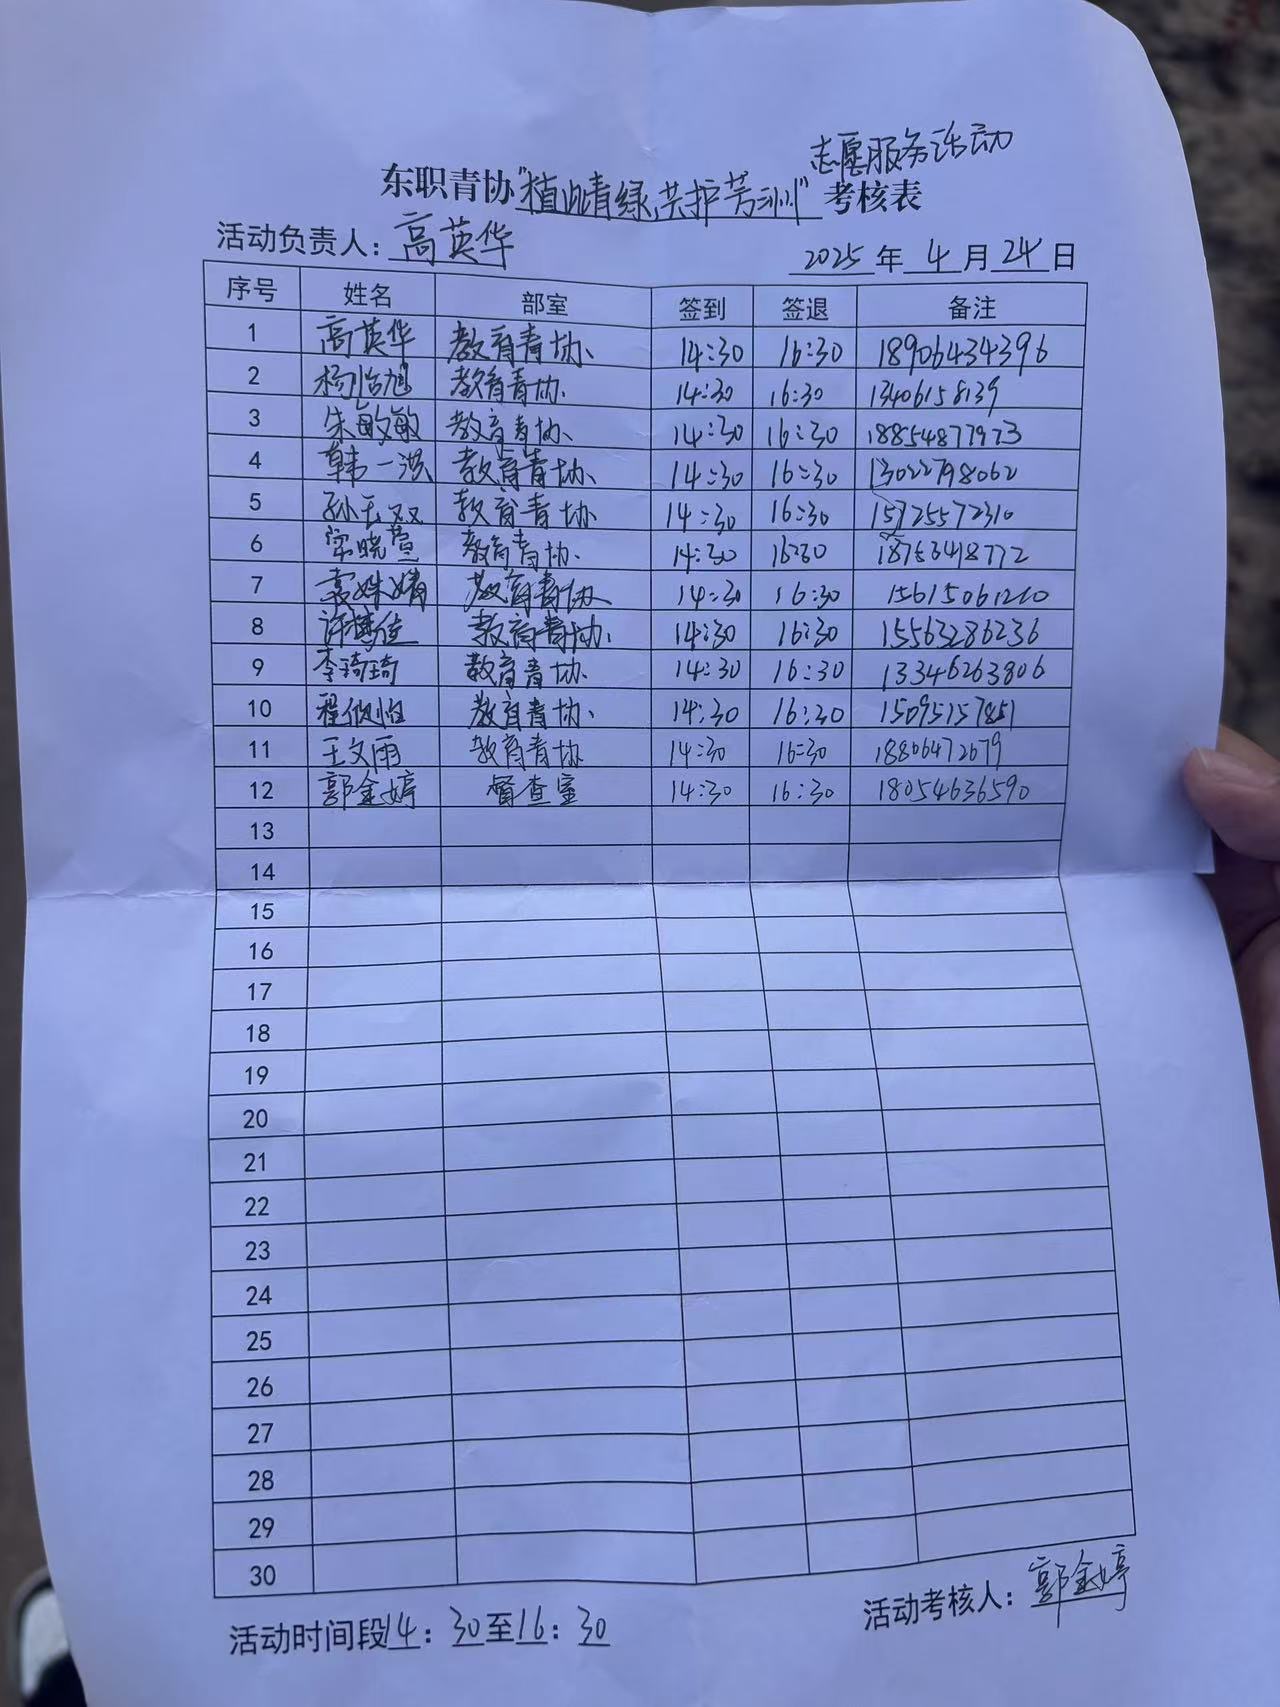 志愿服务活动
东职青协"植此青绿,共护芳洲"考核表
活动负责人：高英华
2025年4月24日
序号 姓名 部室 签到 签退 备注
1 高英华 教育青协 14:30 16:30 18906434396
2 杨怡旭 教育青协 14:30 16:30 13406158139
3 朱敏敏 教育青协 14:30 16:30 18854877973
4 韩一洪 教育青协 14:30 16:30 13022798062
5 孙玉双 教育青协 14:30 16:30 15725572310
6 梁晓萱 教育青协 14:30 16:30 18763418772
7 袁姝婧 教育青协 14:30 16:30 15615061210
8 许博佳 教育青协 14:30 16:30 15563286236
9 李琦琦 教育青协 14:30 16:30 13346263806
10 教育青协 14:30 16:30 15095157851
11 王文雨 教育青协 14:30 16:30 18806472679
12 郭金婷 督查室 14:30 16:30 18054636590
13
14
15
16
17
18
19
20
21
22
23
24
25
26
27
28
29
30
活动时间段14：30至16：30
活动考核人：郭金婷